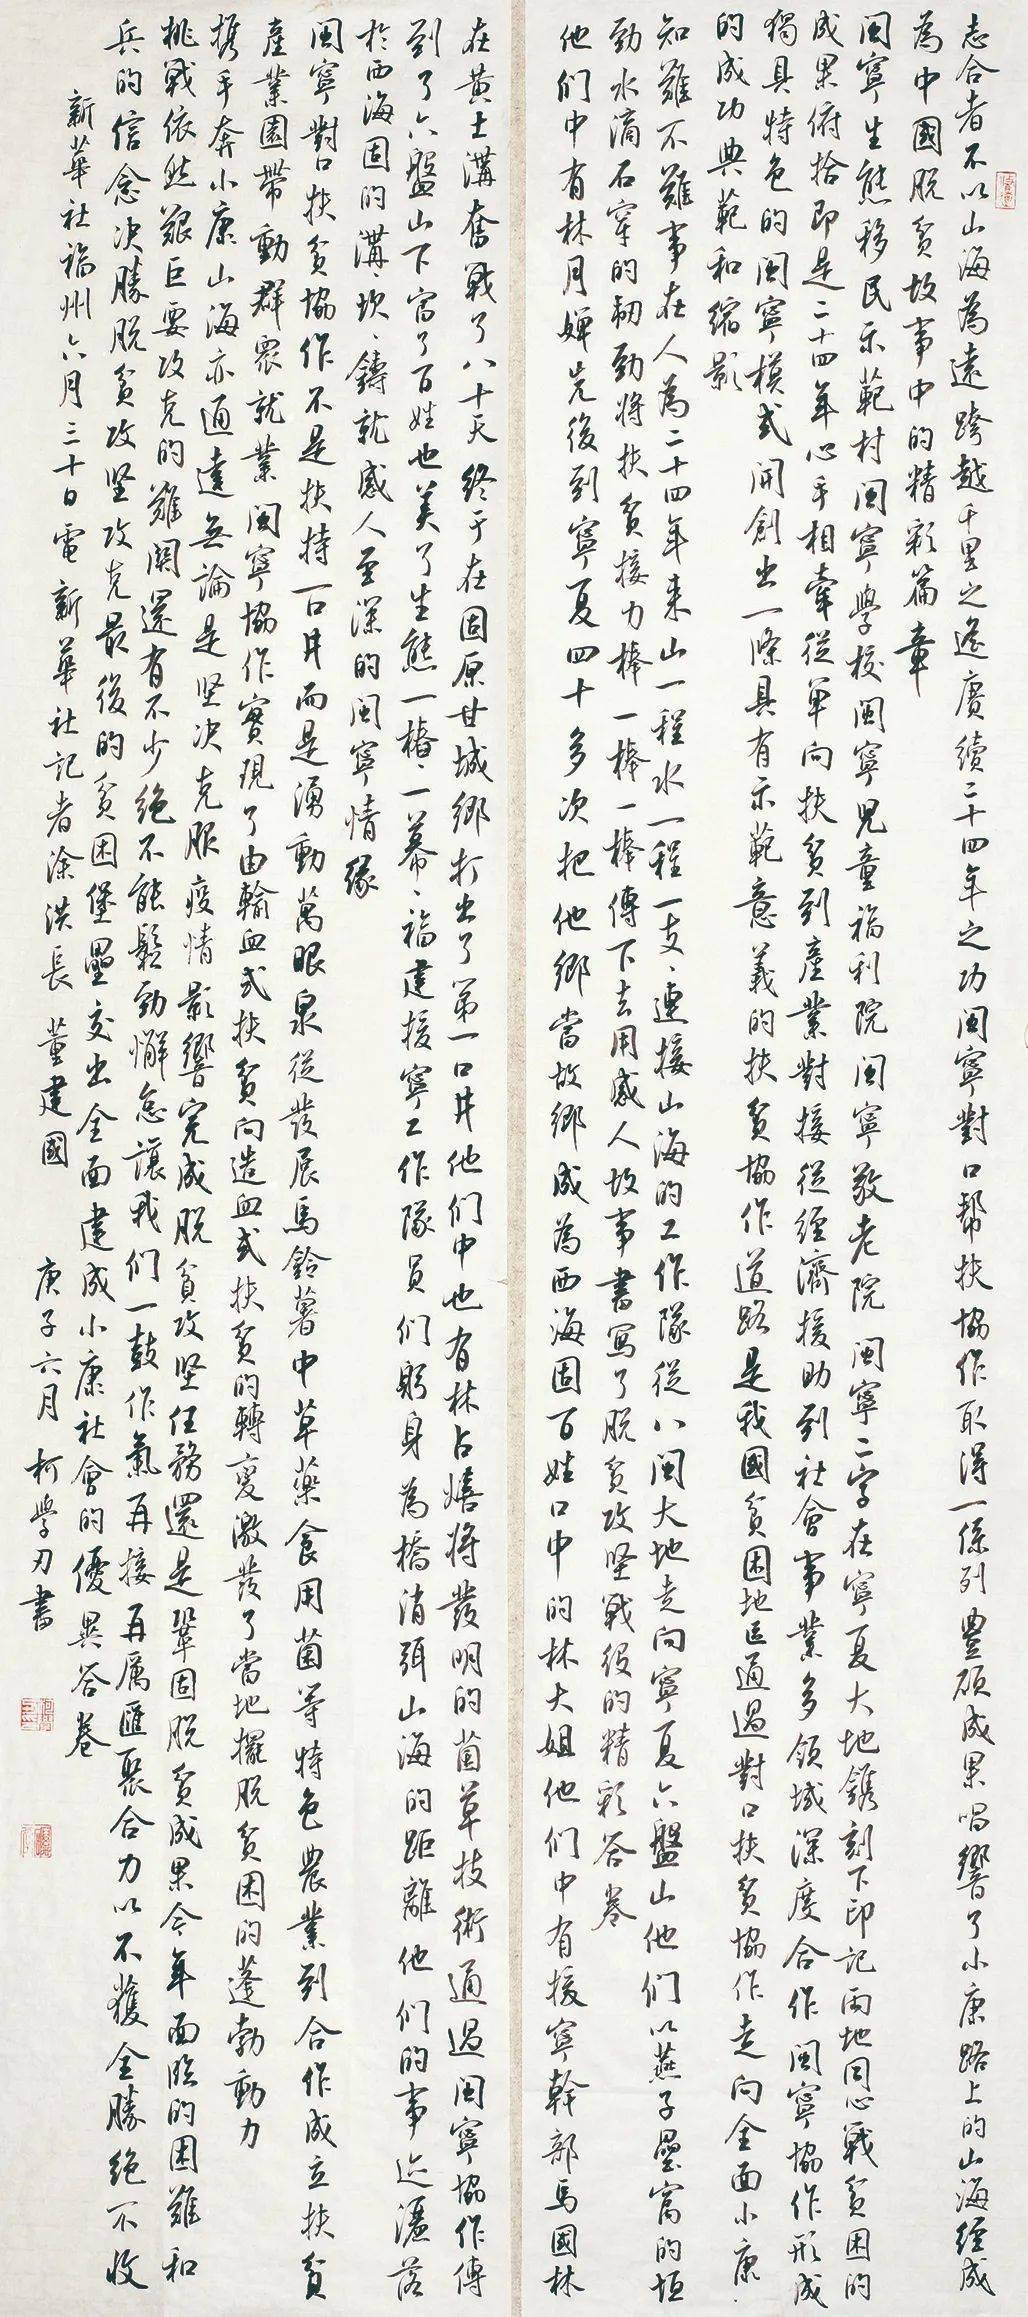 志合者不以山海為遠跨越千里之遙賡續二十四年之功閩寧對口幫扶協作取得一係列豐碩成果唱響了小康路上的山海經成
為中國脫貧故事中的精彩篇章
閩寧生態移民示範村閩寧學校閩寧兒童福利院閩寧敬老院閩寧二字在寧夏大地鐫刻下印記兩地同心戰貧困的
成果俯拾即是二十四年心手相牽從單向扶貧到產業對接從經濟援助到社會事業多領域深度合作閩寧協作形成
獨具特色的閩寧模式開創出一條具有示範意義的扶貧協作道路是我國貧困地區通過對口扶貧協作走向全面小康
的成功典範和縮影
知難不難事在人為二十四年來山一程水一程一支、連接山海的工作隊從八閩大地走向寧夏六盤山他們以燕子壘窩的恒
勁水滴石穿的韌勁將扶貧接力棒一棒一棒傳下去用感人故事書寫了脫貧攻堅戰役的精彩答卷
他們中有林月嬋先後到寧夏四十多次把他鄉當故鄉成為西海固百姓口中的林大姐他們中有援寧幹部馬國林
在黃土溝奮戰了八十天終于在固原甘城鄉打出了第一口井他們中也有林占熺將發明的菌草技術通過閩寧協作傳
到了六盤山下富了百姓也美了生態一樁、一幕、福建援寧工作隊員們躬身為橋消弭山海的距離他們的事迹灑落
於西海固的溝、坎、鑄就感人至深的閩寧情緣
閩寧對口扶貧協作不是扶持一口井而是湧動萬眼泉從發展馬鈴薯中草藥食用菌等特色農業到合作成立扶貧
產業園帶動群眾就業閩寧協作實現了由輸血式扶貧向造血式扶貧的轉變激發了當地擺脫貧困的蓬勃動力
携手奔小康山海亦通達無論是坚决克服疫情影響完成脫貧攻坚任務還是鞏固脫貧成果今年面臨的困難和
挑戰依然艱巨要攻克的難關還有不少絶不能鬆勁懈怠讓我們一鼓作氣再接再厲匯聚合力以不獲全勝絶不收
兵的信念决勝脫貧攻坚攻克最後的貧困堡壘交出全面建成小康社會的優異答卷
新華社福州六月三十日電新華社記者涂洪長 董建國
庚子六月 柯學刃書